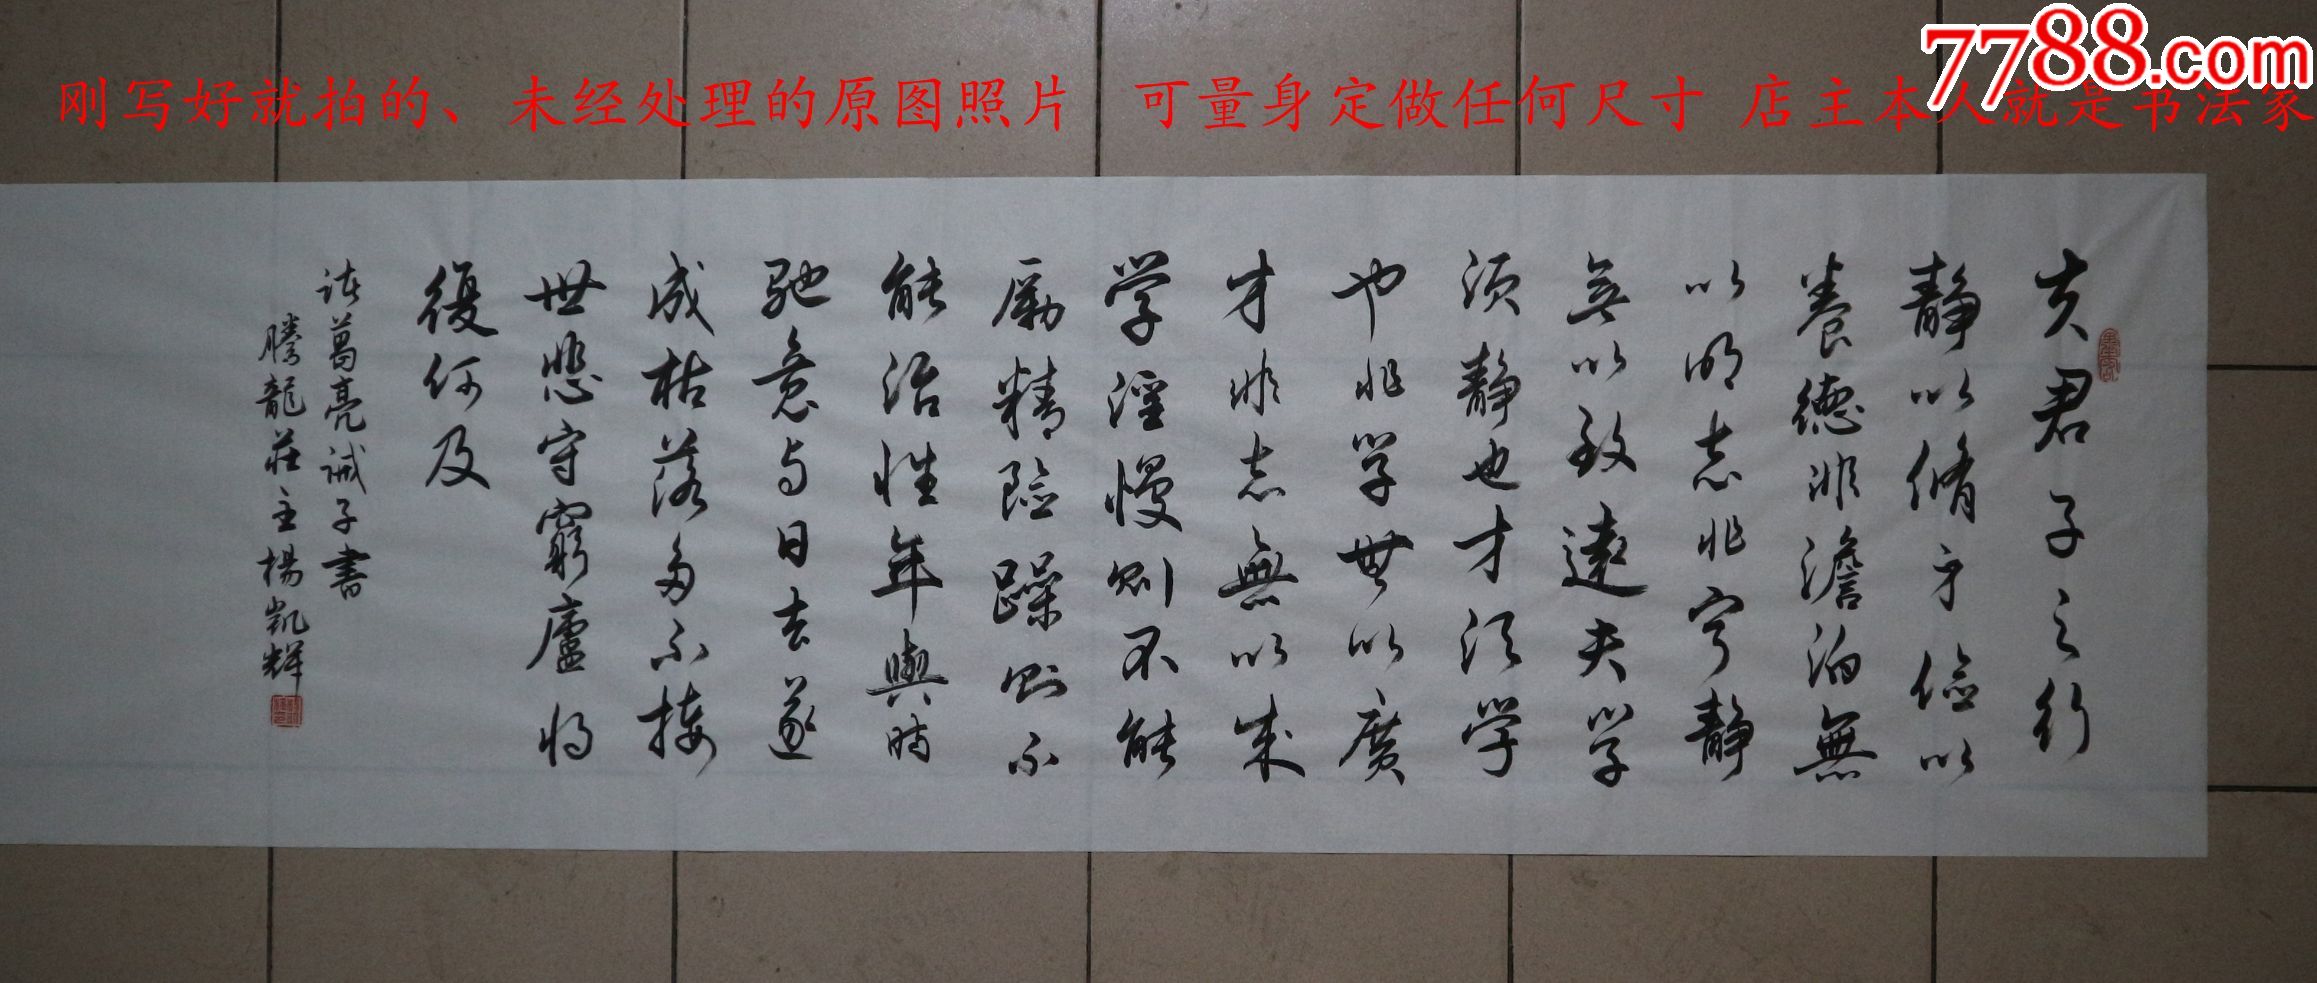 7788.com
刚写好就拍的、未经处理的原图照片 可量身定做任何尺寸 店主本人就是书法家
夫君子之行
静以脩身儉以
養德非澹泊無
以明志非寧靜
無以致遠夫学
须静也才须学
也非学無以廣
才非志無以成
学淫慢则不能
勵精險躁则不
能治性年與時
馳意与日去遂
成枯落多不接
世悲守窮廬将
復何及
諸葛亮誡子書
騰龍莊主楊凱輝